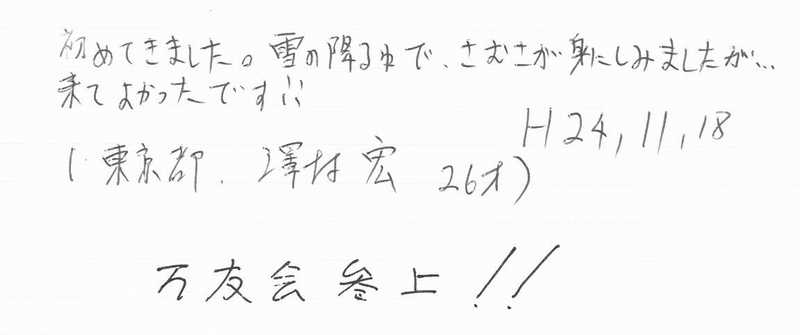 初めてきました。雪の降る中で、さむさが身にしみましたが…
来てよかったです!!
H24,11,18
(東京都、澤村 宏 26才)
万友会参上!!